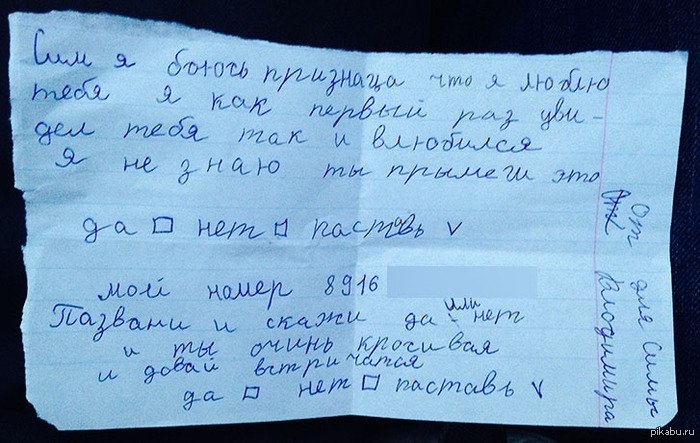 Сим я боюсь признаца что я люблю
тебя я как первый раз уви-
дел тебя так и влюбился
я не знаю ты прымеш это
да □ нет □ паставь v
мой намер 8916
Пазвани и скажи да или нет
и ты очинь кросивая
и довай встричатся
да □ нет □ паставь v
для Симы
От Валодимира
pikabu.ru